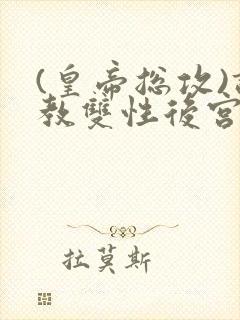 (皇帝总攻)
教雙性後宮
拉莫斯